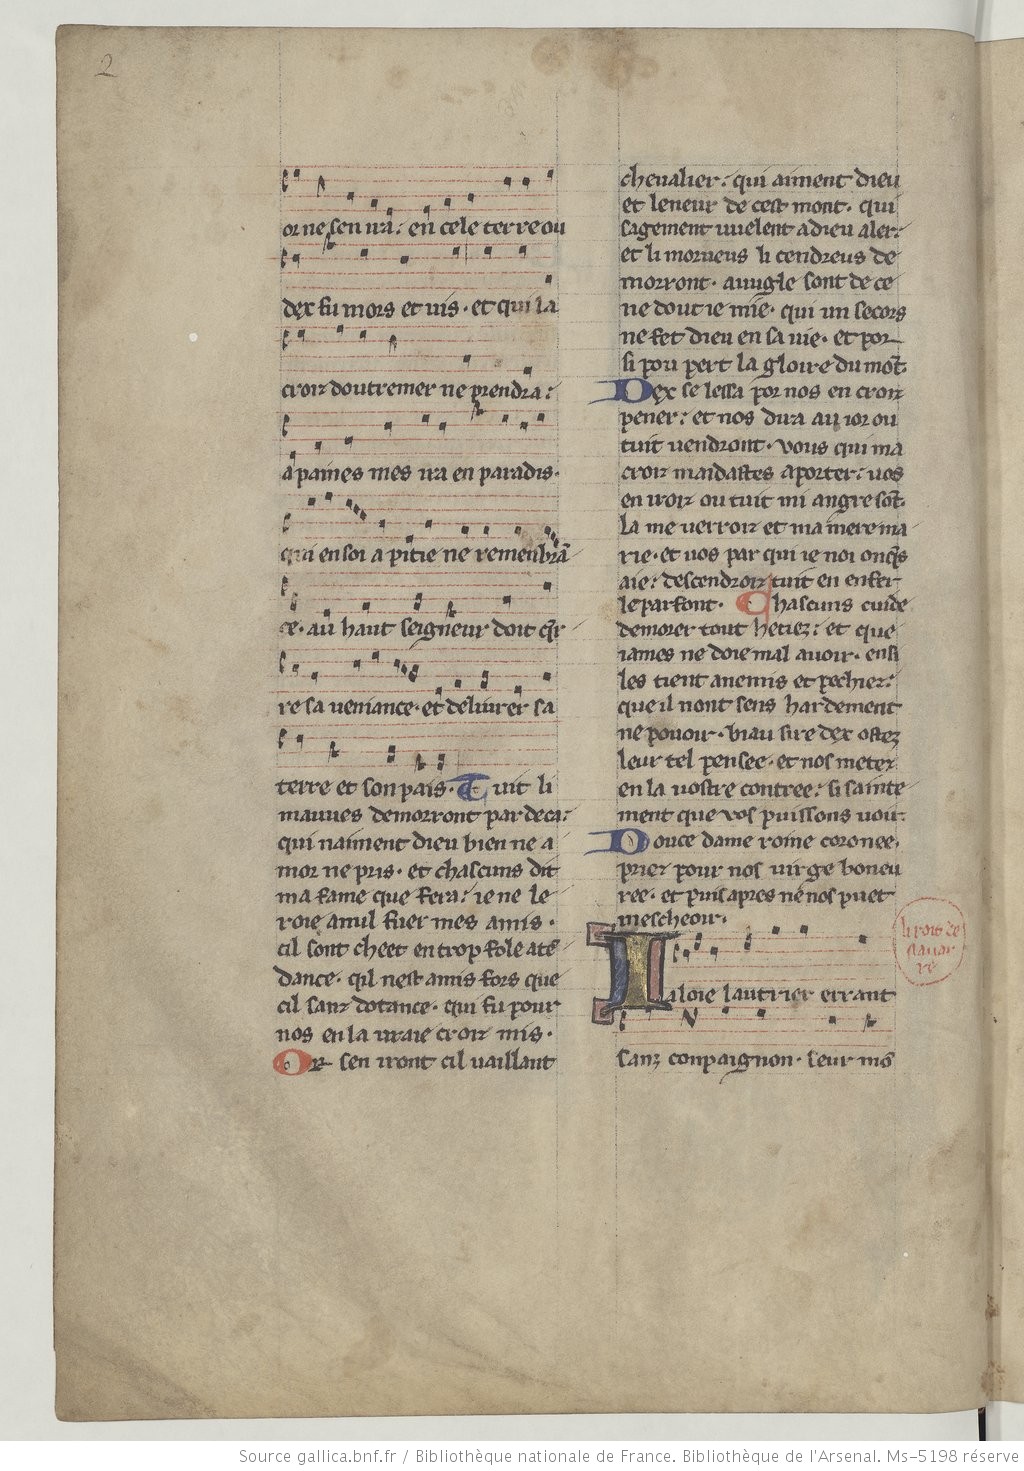 2
or ne sen ira: en cele terre ou
dex fu mors et uis · et qui la
croiz doutremer ne prendra:
a paines mes ira en paradis ·
qui en soi a pitie ne remenbrā
ce · au haut seigneur doit q̄r
re sa ueniance · et deliurer sa
terre et son pais · Tuit li
mauues demorront par deca:
qui naiment dieu bien ne a
mor ne pris · et chascuns dit
ma fame que fera: ie ne le
roie a nul fuer mes amis ·
cil sont cheet en trop fole atē
dance · qil nest amis fors que
cil sanz dotance · qui fu pour
nos en la uraie croiz mis ·
Or sen iront cil uaillant
cheualier: qui aiment dieu
et leneur de cest mont · qui
sagement uuelent a dieu aler:
et li morueus li cendreus de
morront · auugle sont de ce
ne dout ie mie · qui un secors
ne fet dieu en sa uie · et por
si pou pert la gloire du mōt ·
Dex se lessa por nos en croiz
pener: et nos dira au ior ou
tuit uendront · vous qui ma
croiz maidastes a porter: uos
en iroiz ou tuit mi angre sōt ·
la me uerroiz et ma mere ma
rie · et uos par qui ie noi onq̄s
aie: descendroiz tuit en enfer
le parfont · Chascuns cuide
demorer tout hetiez: et que
iames ne doie mal auoir · ensi
les tient anemis et pechiez:
que il nont sens hardement
ne pouoir · biau sire dex ostez
leur tel pensee · et nos metez
en la uostre contree: si sainte
ment que vos puissons uoir ·
Douce dame roine coronee ·
priez pour nos uirge boneu
ree · et puis apres ne nos puet
mescheoir ·
li rois de
nauar
re
Ialoie lautrier errant
sanz conpaignon · seur mō
Source gallica.bnf.fr / Bibliothèque nationale de France. Bibliothèque de l'Arsenal. Ms-5198 réserve